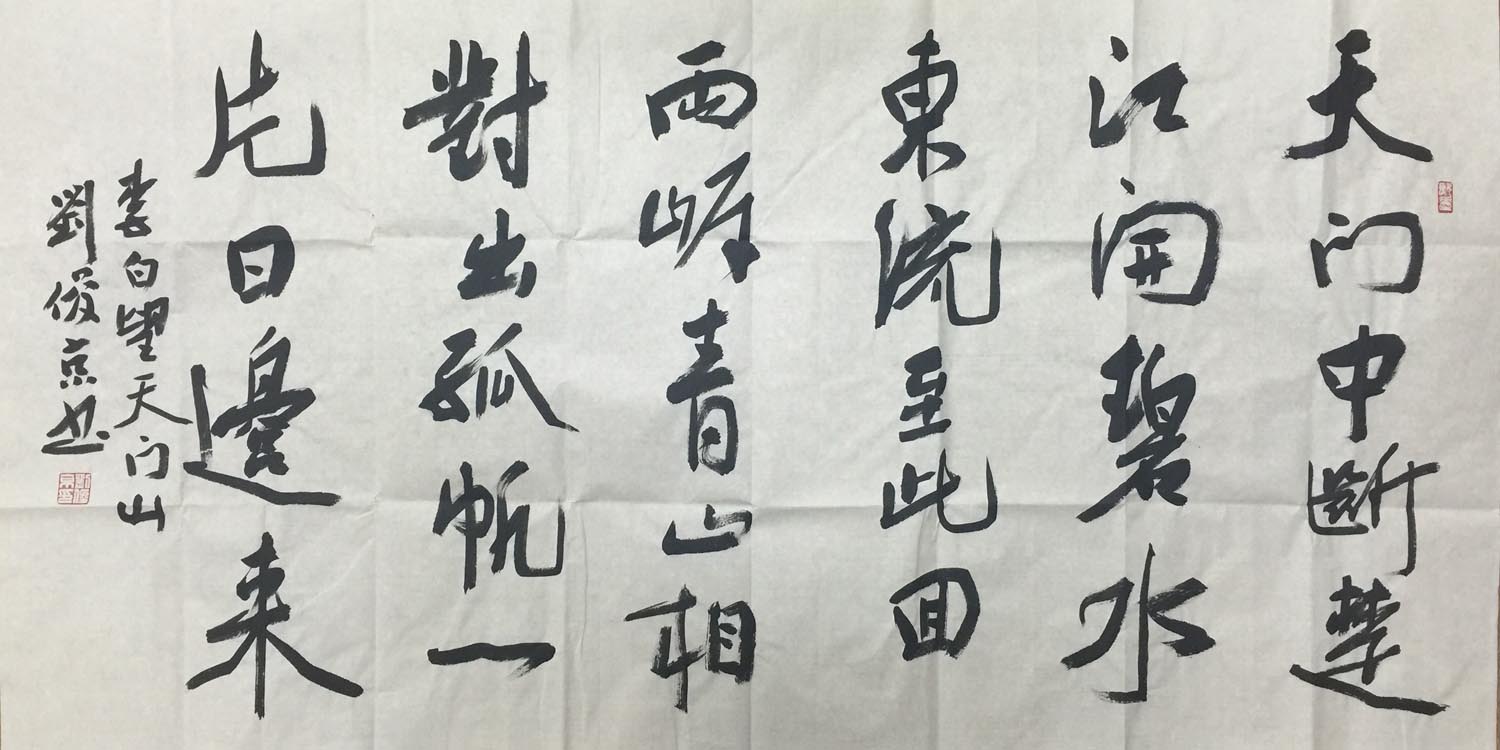 天门中斷楚
江開碧水
東流至此回
兩岸青山相
對出孤帆一
片日邊来
李白望天门山
劉俊京书